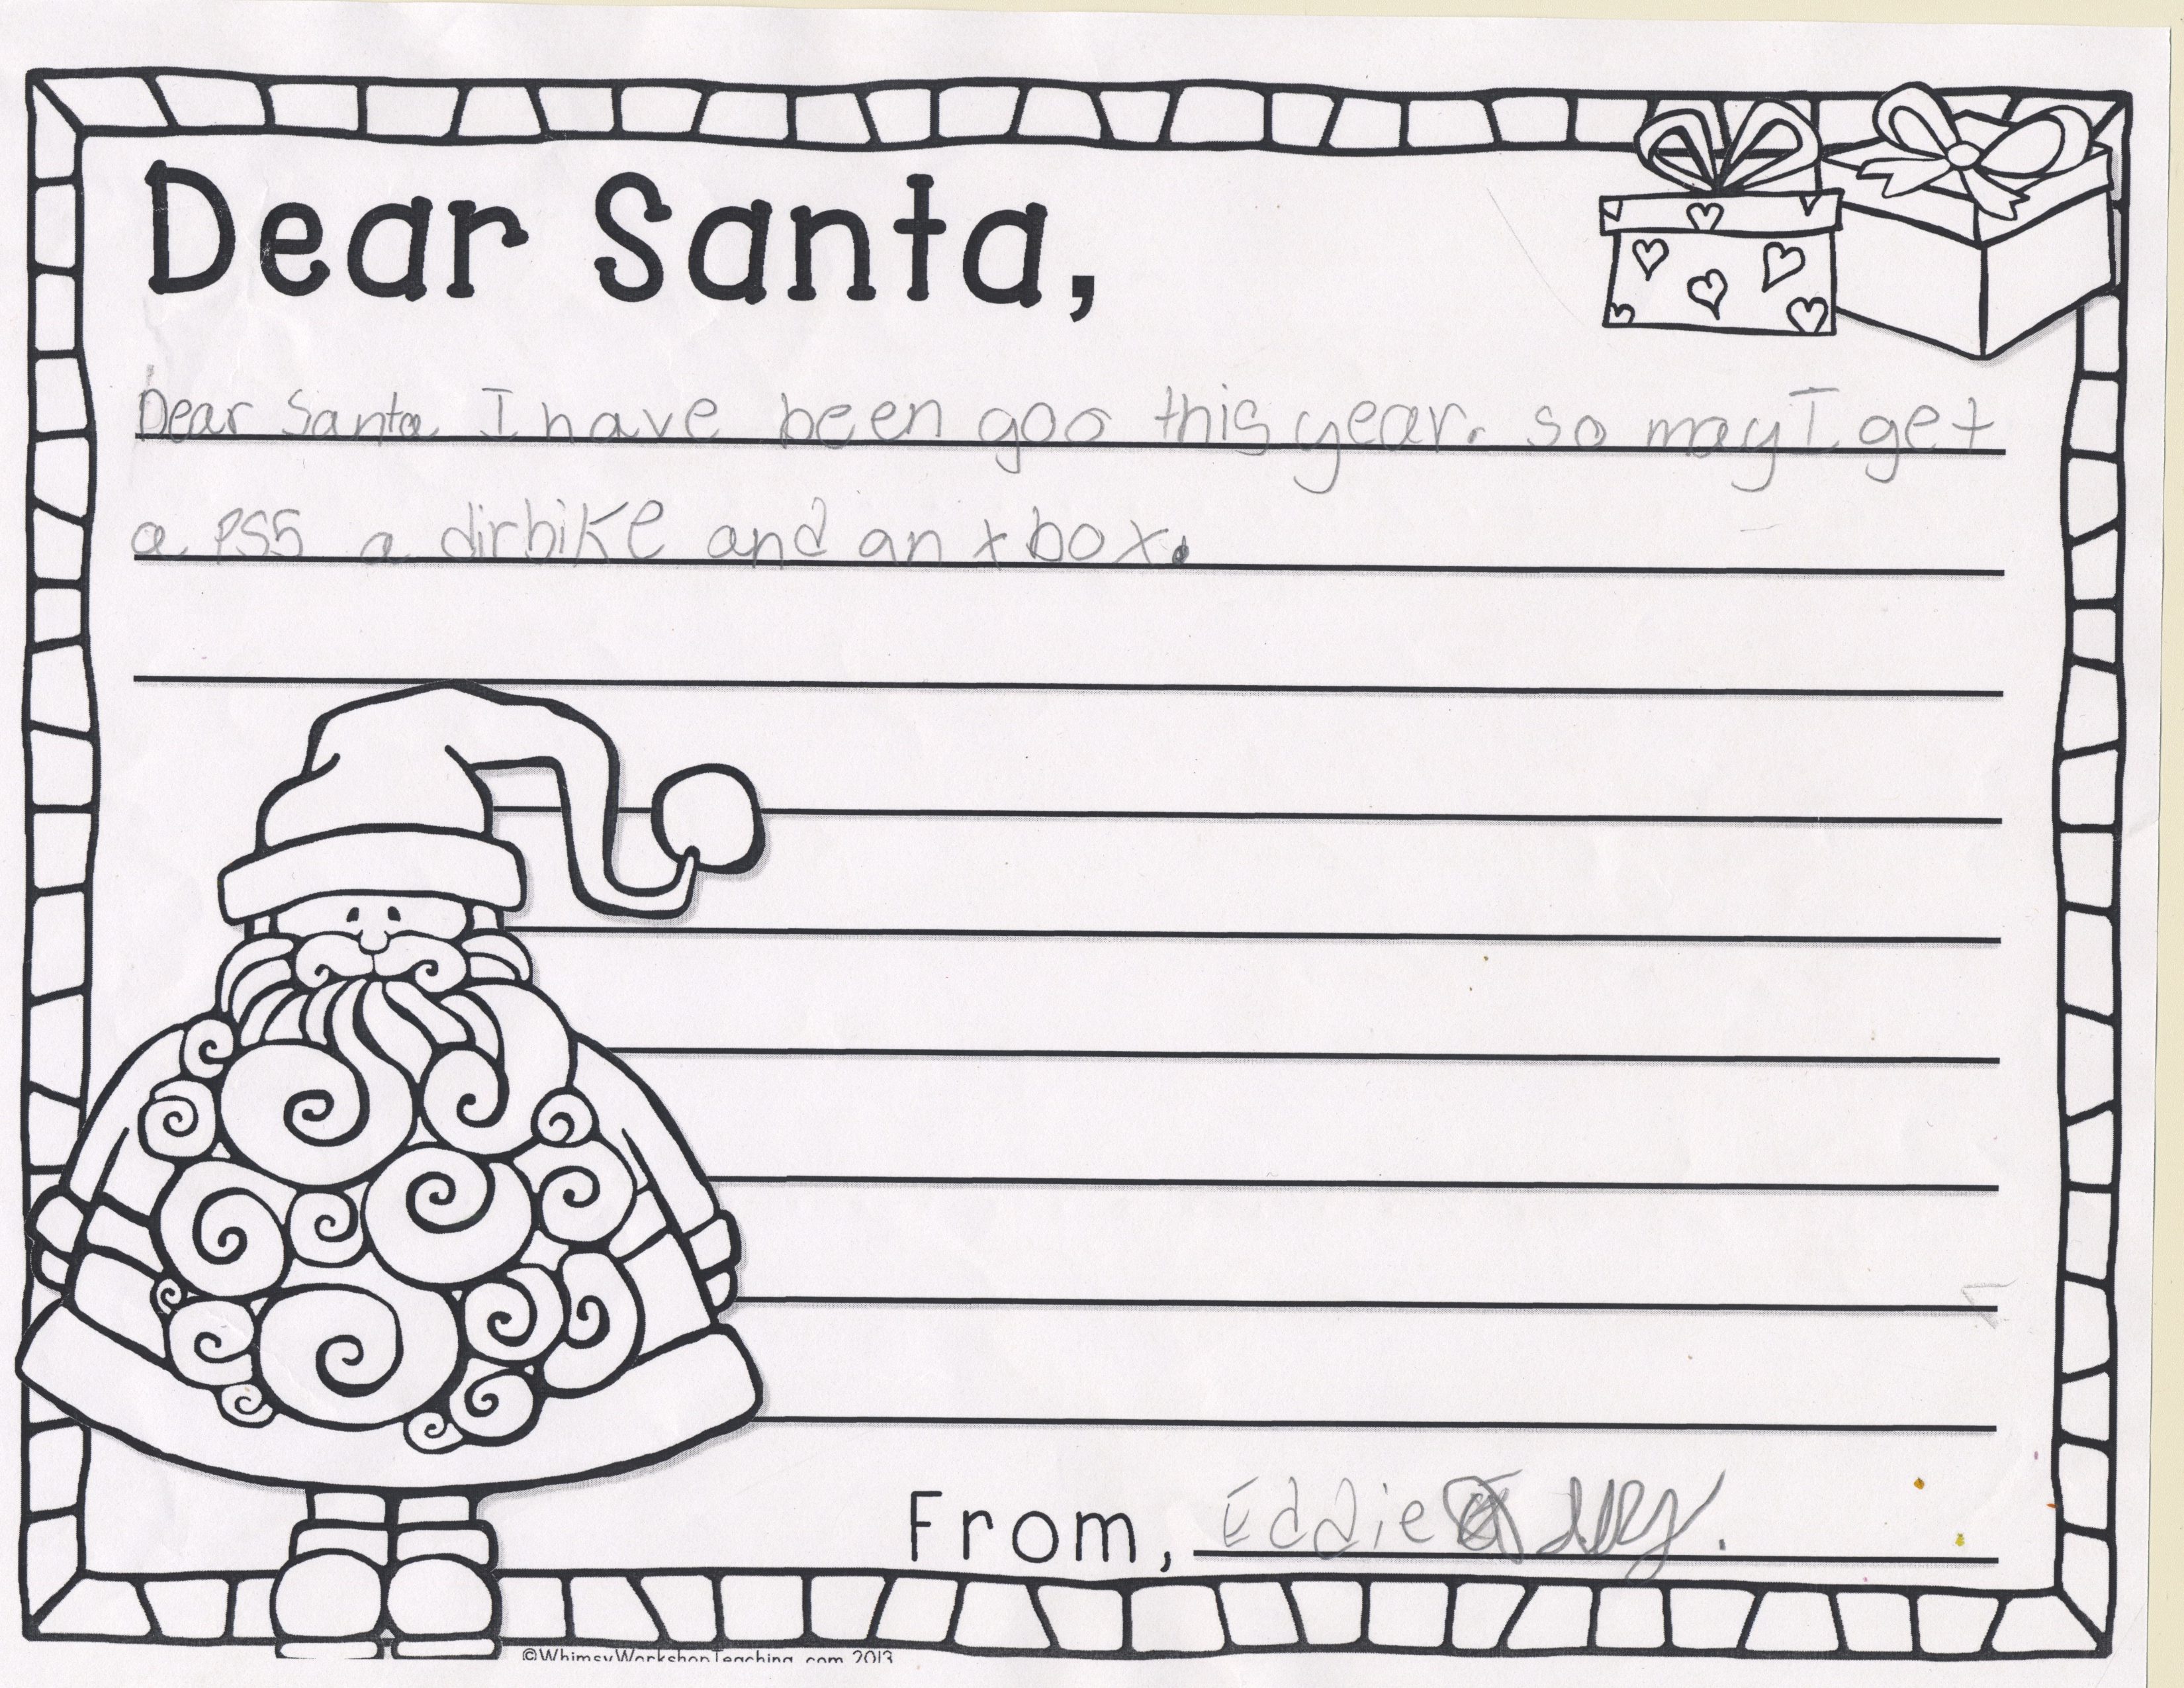 Dear Santa,
Dear Santa I have been goo this year. so may I get
a PS5 a dirbike and an xbox.
From, Eddie
©WhimsyWorkshopTeaching.com 2013